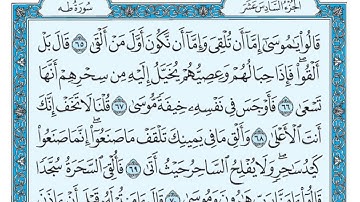 الجزء السادس عشر سورة طه
قَالُوا۟ يَٰمُوسَىٰٓ إِمَّآ أَن تُلْقِىَ وَإِمَّآ أَن نَّكُونَ أَوَّلَ مَنْ أَلْقَىٰ ٦٥ قَالَ بَلْ
أَلْقُوا۟ فَإِذَا حِبَالُهُمْ وَعِصِيُّهُمْ يُخَيَّلُ إِلَيْهِ مِن سِحْرِهِمْ أَنَّهَا
تَسْعَىٰ ٦٦ فَأَوْجَسَ فِى نَفْسِهِۦ خِيفَةً مُّوسَىٰ ٦٧ قُلْنَا لَا تَخَفْ إِنَّكَ
أَنتَ ٱلْأَعْلَىٰ ٦٨ وَأَلْقِ مَا فِى يَمِينِكَ تَلْقَفْ مَا صَنَعُوٓا۟ إِنَّمَا صَنَعُوا۟
كَيْدُ سَٰحِرٍ وَلَا يُفْلِحُ ٱلسَّاحِرُ حَيْثُ أَتَىٰ ٦٩ فَأُلْقِىَ ٱلسَّحَرَةُ سُجَّدًا
قَالُوٓا۟ ءَامَنَّا بِرَبِّ هَٰرُونَ وَمُوسَىٰ ٧٠ قَالَ ءَامَنتُمْ لَهُۥ قَبْلَ أَنْ ءَاذَنَ